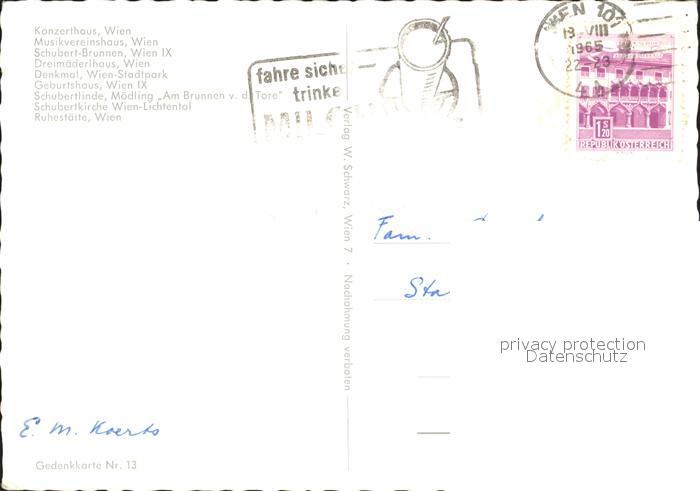 Konzerthaus, Wien
Musikvereinshaus, Wien
Schubert-Brunnen, Wien IX
Dreimäderlhaus, Wien
Denkmal, Wien-Stadtpark
Geburtshaus, Wien IX
Schubertlinde, Mödling „Am Brunnen v. d. Tore"
Schubertkirche Wien-Lichtental
Ruhestätte, Wien
fahre siche
trinke
MILCH
WIEN 101
18. VIII
1965
22-23
1 S 20
REPUBLIK ÖSTERREICH
Verlag W. Schwarz, Wien 7 · Nachahmung verboten
Fam.
Sta
privacy protection
Datenschutz
E. M. Koerts
Gedenkkarte Nr. 13